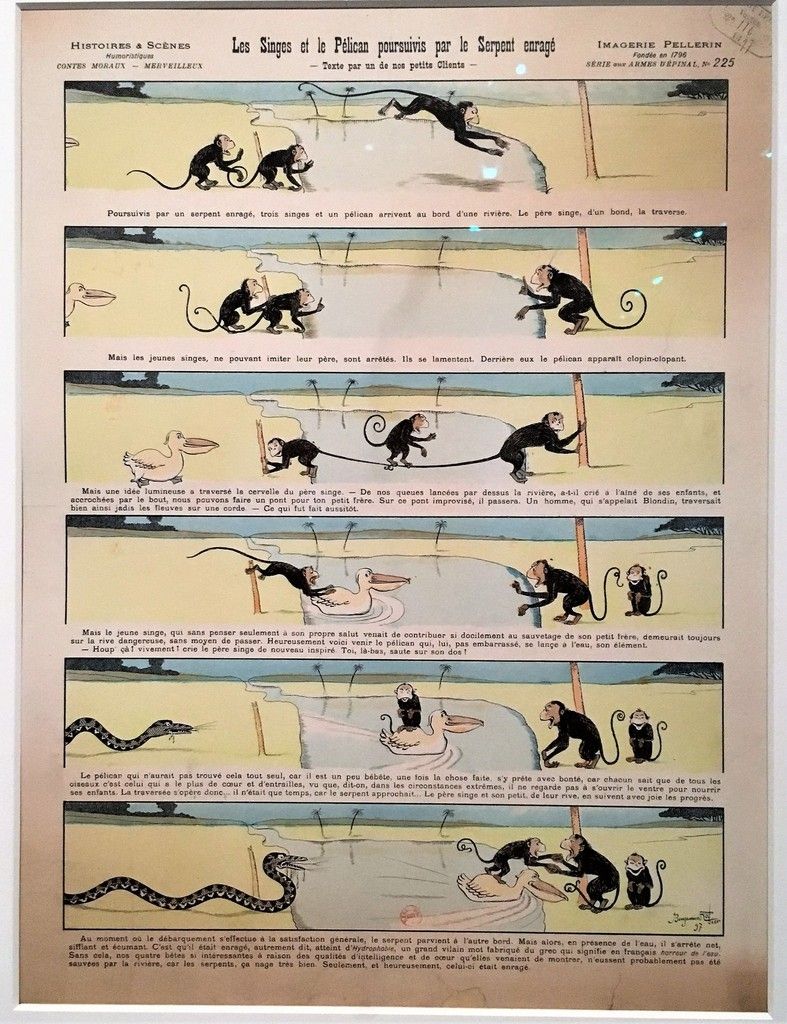 HISTOIRES & SCÈNES
Humoristiques
CONTES MORAUX – MERVEILLEUX
Les Singes et le Pélican poursuivis par le Serpent enragé
— Texte par un de nos petits Clients —
IMAGERIE PELLERIN
Fondée en 1796
SÉRIE aux ARMES D'ÉPINAL, No 225
Poursuivis par un serpent enragé, trois singes et un pélican arrivent au bord d'une rivière. Le père singe, d'un bond, la traverse.
Mais les jeunes singes, ne pouvant imiter leur père, sont arrêtés. Ils se lamentent. Derrière eux le pélican apparaît clopin-clopant.
Mais une idée lumineuse a traversé la cervelle du père singe. — De nos queues lancées par dessus la rivière, a-t-il crié à l'aîné de ses enfants, et
accrochées par le bout, nous pouvons faire un pont pour ton petit frère. Sur ce pont improvisé, il passera. Un homme, qui s'appelait Blondin, traversait
bien ainsi jadis les fleuves sur une corde. — Ce qui fut fait aussitôt.
Mais le jeune singe, qui sans penser seulement à son propre salut venait de contribuer si docilement au sauvetage de son petit frère, demeurait toujours
sur la rive dangereuse, sans moyen de passer. Heureusement voici venir le pélican qui, lui, pas embarrassé, se lance à l'eau, son élément.
— Houp ça! vivement! crie le père singe de nouveau inspiré. Toi, là-bas, saute sur son dos!
Le pélican qui n'aurait pas trouvé cela tout seul, car il est un peu bébête, une fois la chose faite, s'y prête avec bonté, car chacun sait que de tous les
oiseaux c'est celui qui a le plus de cœur et d'entrailles, vu que, dit-on, dans les circonstances extrêmes, il ne regarde pas à s'ouvrir le ventre pour nourrir
ses enfants. La traversée s'opère donc... il n'était que temps, car le serpent approchait... Le père singe et son petit, de leur rive, en suivent avec joie les progrès.
Benjamin Rabier
97
Au moment où le débarquement s'effectue à la satisfaction générale, le serpent parvient à l'autre bord. Mais alors, en présence de l'eau, il s'arrête net,
sifflant et écumant. C'est qu'il était enragé, autrement dit, atteint d'Hydrophobie, un grand vilain mot fabriqué du grec qui signifie en français horreur de l'eau.
Sans cela, nos quatre bêtes si intéressantes à raison des qualités d'intelligence et de cœur qu'elles venaient de montrer, n'eussent probablement pas été
sauvées par la rivière, car les serpents, ça nage très bien. Seulement, et heureusement, celui-ci était enragé.